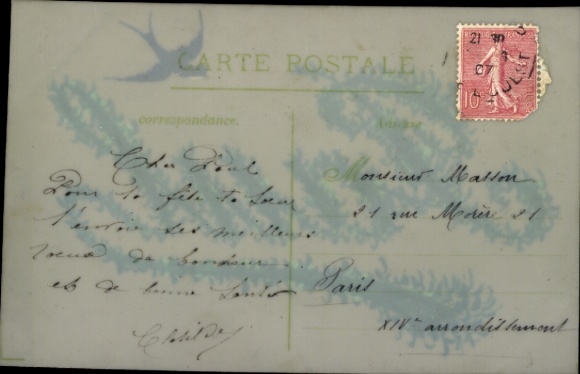 CARTE POSTALE
correspondance.
Adresse
Cher Paul
Pour ta fête ta sœur
t'envoie ses meilleurs
voeux de bonheur
et de bonne santé
Clotilde
Monsieur Masson
21 rue Morère 21
Paris
XIVe arrondissement
21
07
10